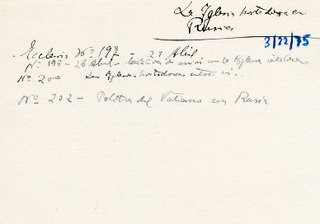 La Iglesia ortodoxa en
Rusia
3/22/75
Ecclesia No. 198 - 27 Abril
No. 198 - 28 Abril - de unión con la Iglesia
No. 200 La Iglesia ortodoxa
No. 202 - Política del Vaticano en Rusia